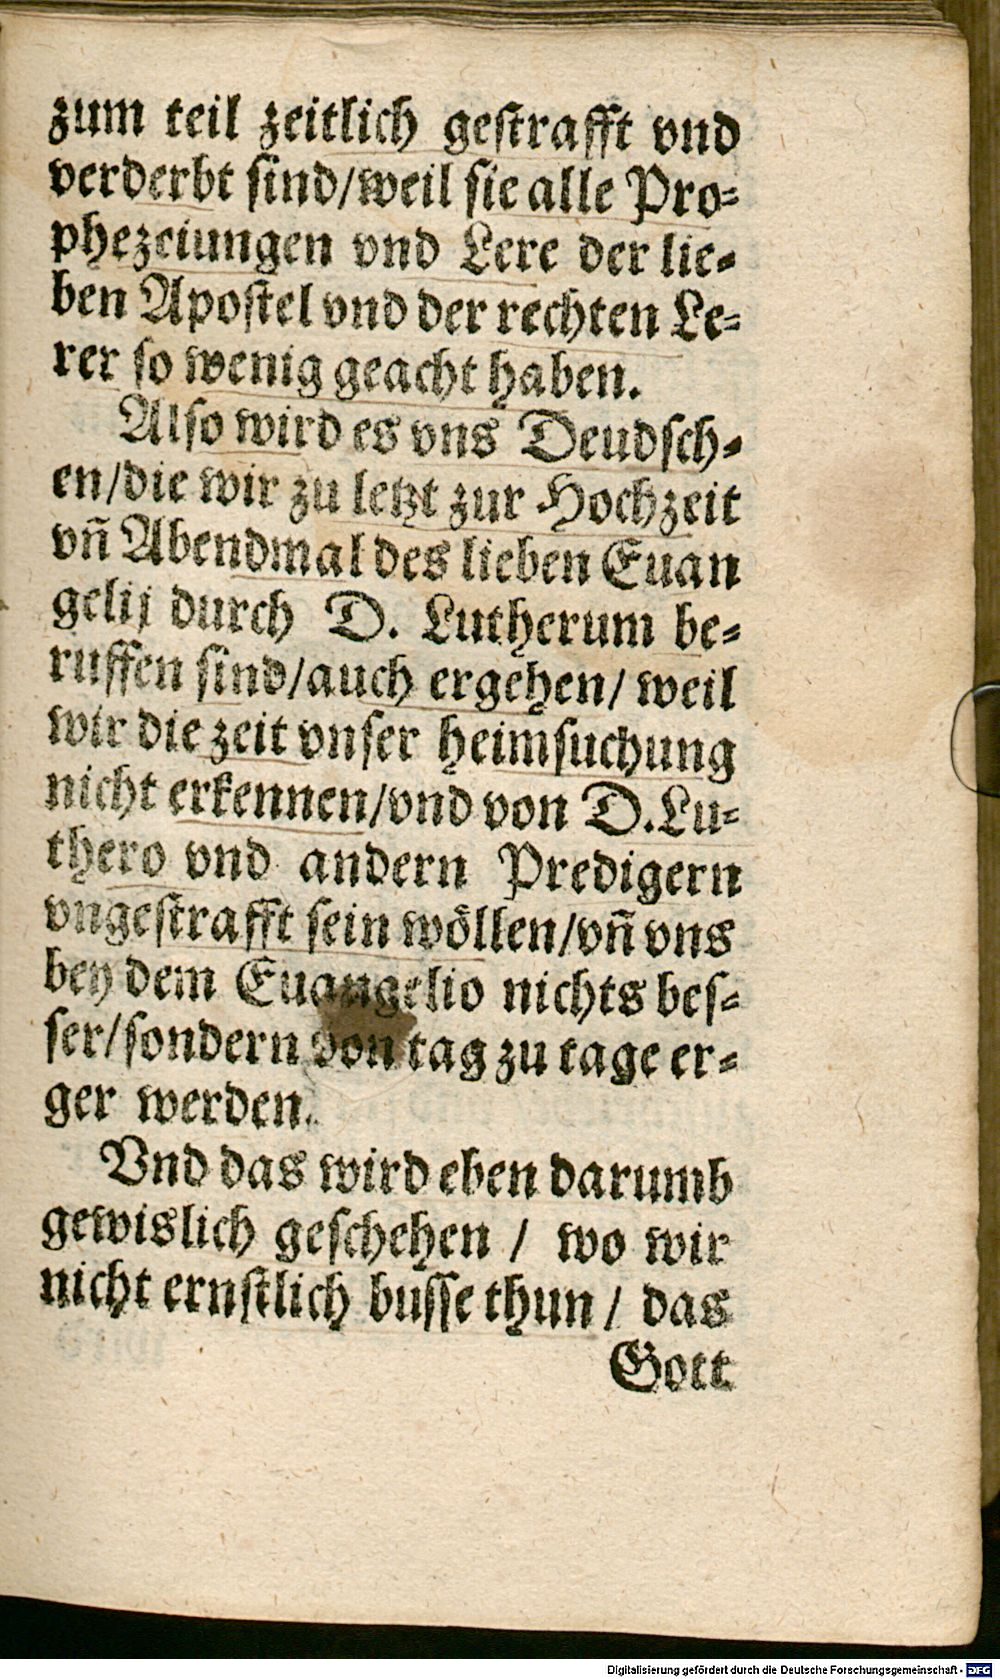 zum teil zeitlich gestrafft vnd
verderbt sind/weil sie alle Pro-
phezeiungen vnd Lere der lie-
ben Apostel vnd der rechten Le-
rer so wenig geacht haben.
Also wird es vns Deudsch-
en/die wir zu letzt zur Hochzeit
vñ Abendmal des lieben Euan
gelij durch D. Lutherum be-
ruffen sind/auch ergehen/ weil
wir die zeit vnser heimsuchung
nicht erkennen/vnd von D.Lu-
thero vnd andern Predigern
vngestrafft sein wöllen/vñ vns
bey dem Euangelio nichts bes-
ser/sondern von tag zu tage er-
ger werden.
Vnd das wird eben darumb
gewislich geschehen / wo wir
nicht ernstlich busse thun / das
Gott
Digitalisierung gefördert durch die Deutsche Forschungsgemeinschaft - DFG